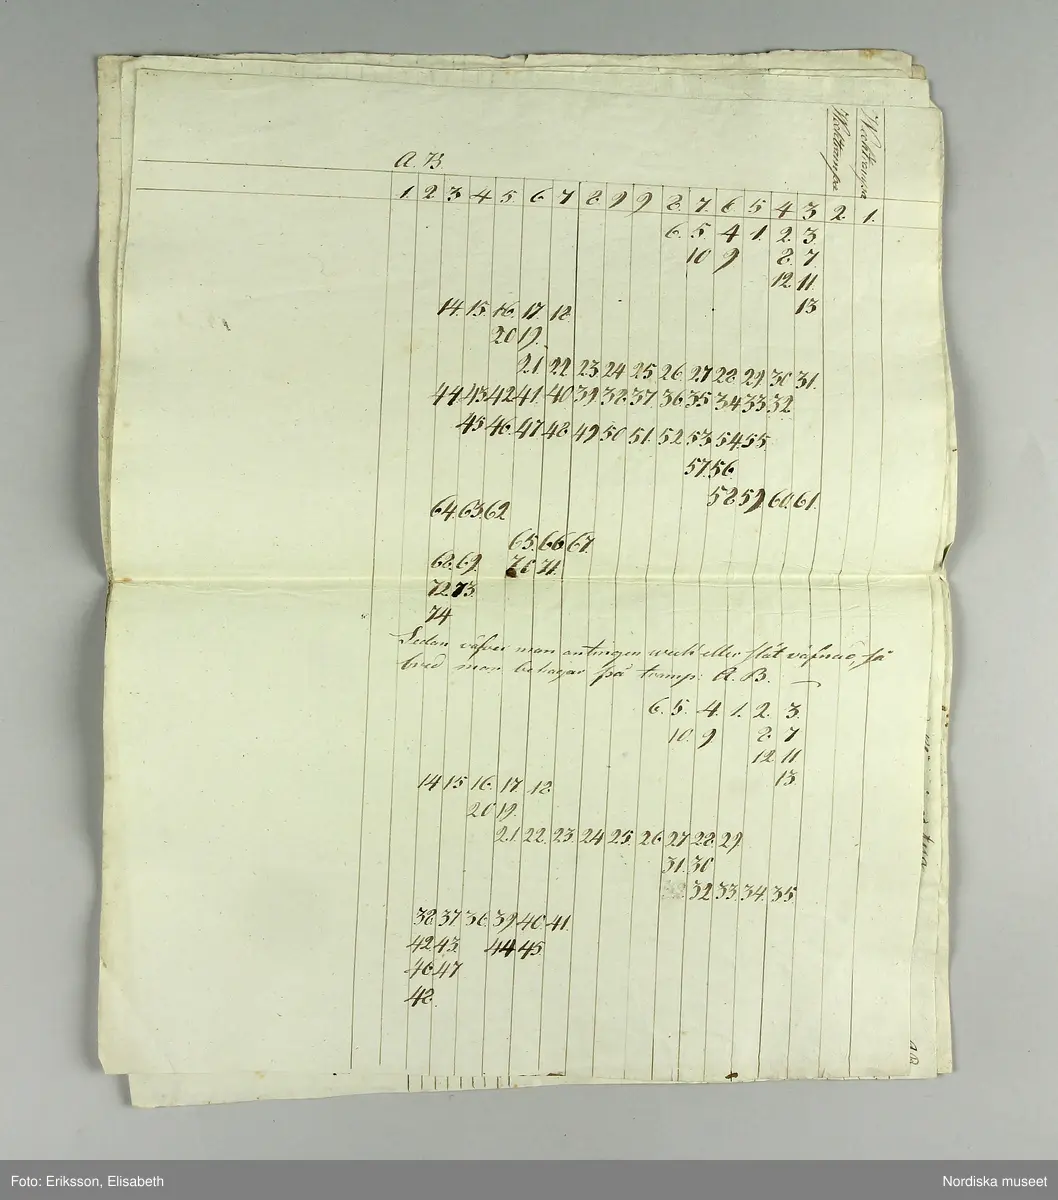 A. B
1. 2. 3 4 5. 6 7 8. 9 9 8. 7. 6 5 4 3 2. 1.
6. 5. 4 1. 2. 3.
10 9 8. 7
12. 11.
13
14. 15. 16. 17. 18.
20 19.
21. 22 23 24 25 26 27 28 29 30 31.
44 43 42 41. 40 39 38 37. 36 35 34 33 32
45 46 47 48. 49 50 51. 52 53 54 55
57. 56.
58 59. 60. 61.
64. 63. 62
65. 66 67.
68. 69. 70 71.
72. 73.
74
Sedan väfver man antingen wech eller slät väfnad, så
bred man behagar på tramp: A. B.
6. 5. 4. 1. 2. 3.
10. 9 8. 7
12 11
13.
14 15 16. 17 18.
20 19.
21. 22. 23. 24 25. 26 27 28. 29
31. 30
32 33. 34. 35
38. 37 36. 39 40. 41.
42 43. 44 45.
46 47
48.
AB
Foto: Eriksson, Elisabeth
Nordiska museet